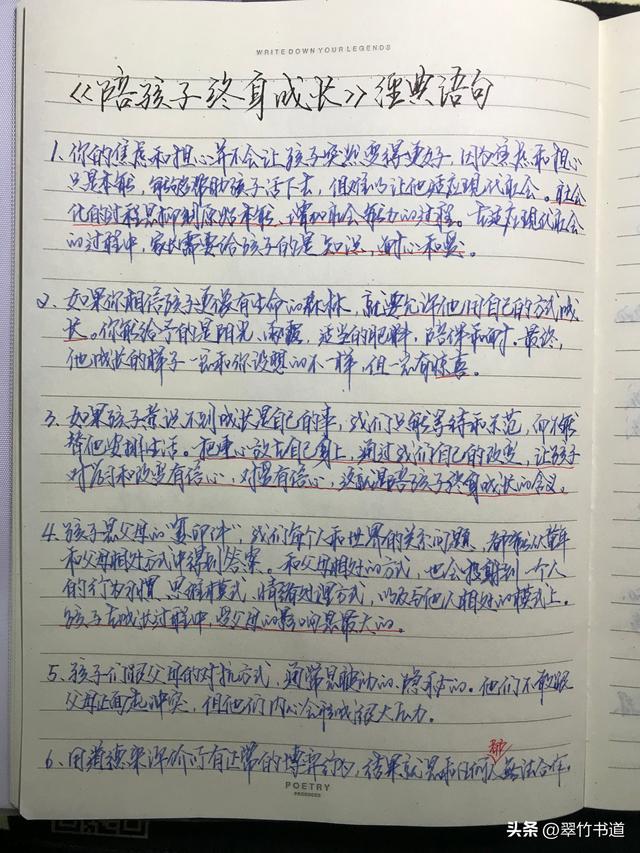 WRITE DOWN YOUR LEGENDS
《陪孩子终身成长》经典语句
1、你的焦虑和担心并不会让孩子突然变得更好，因为焦虑和担心
只是本能，能够帮助孩子活下去，但难以让他适应现代社会。社会
化的过程是抑制原始本能、增加社会能力的过程。在适应现代社会
的过程中，家长需要给孩子的是知识、耐心和爱。
2、如果你相信孩子是很有生命的森林，就要允许他用自己的方式成
长。你能给予的是阳光、雨露，适当的肥料，陪伴和时。最终，
他成长的样子一定和你设想的不一样，但一定有惊喜。
3、如果孩子意识不到成长是自己的事，我们只能等待和示范，而不能
替他安排生活。把重心放在自己身上，通过我们自己的改变，让孩子
对学习和改变有信心，对爱有信心，这就是陪孩子终身成长的含义。
4、孩子是父母的“复印件”，我们每个人和世界的关系问题，都能从童年
和父母相处方式中得到答案。和父母相处的方式，也会投射到一个人
的行为习惯、思维模式、情绪处理方式，以及与他人相处的模式上。
孩子在成长过程中，受父母的影响是最大的。
5、孩子们跟父母的对抗方式，通常是被动的、隐秘的。他们不敢跟
父母正面起冲突，但他们内心会形成很大压力。
6、用道德来评价所有正常的博弈行为，结果就是和任何人都无法合作。
POETRY
PRODUCED
头条 @翠竹书道